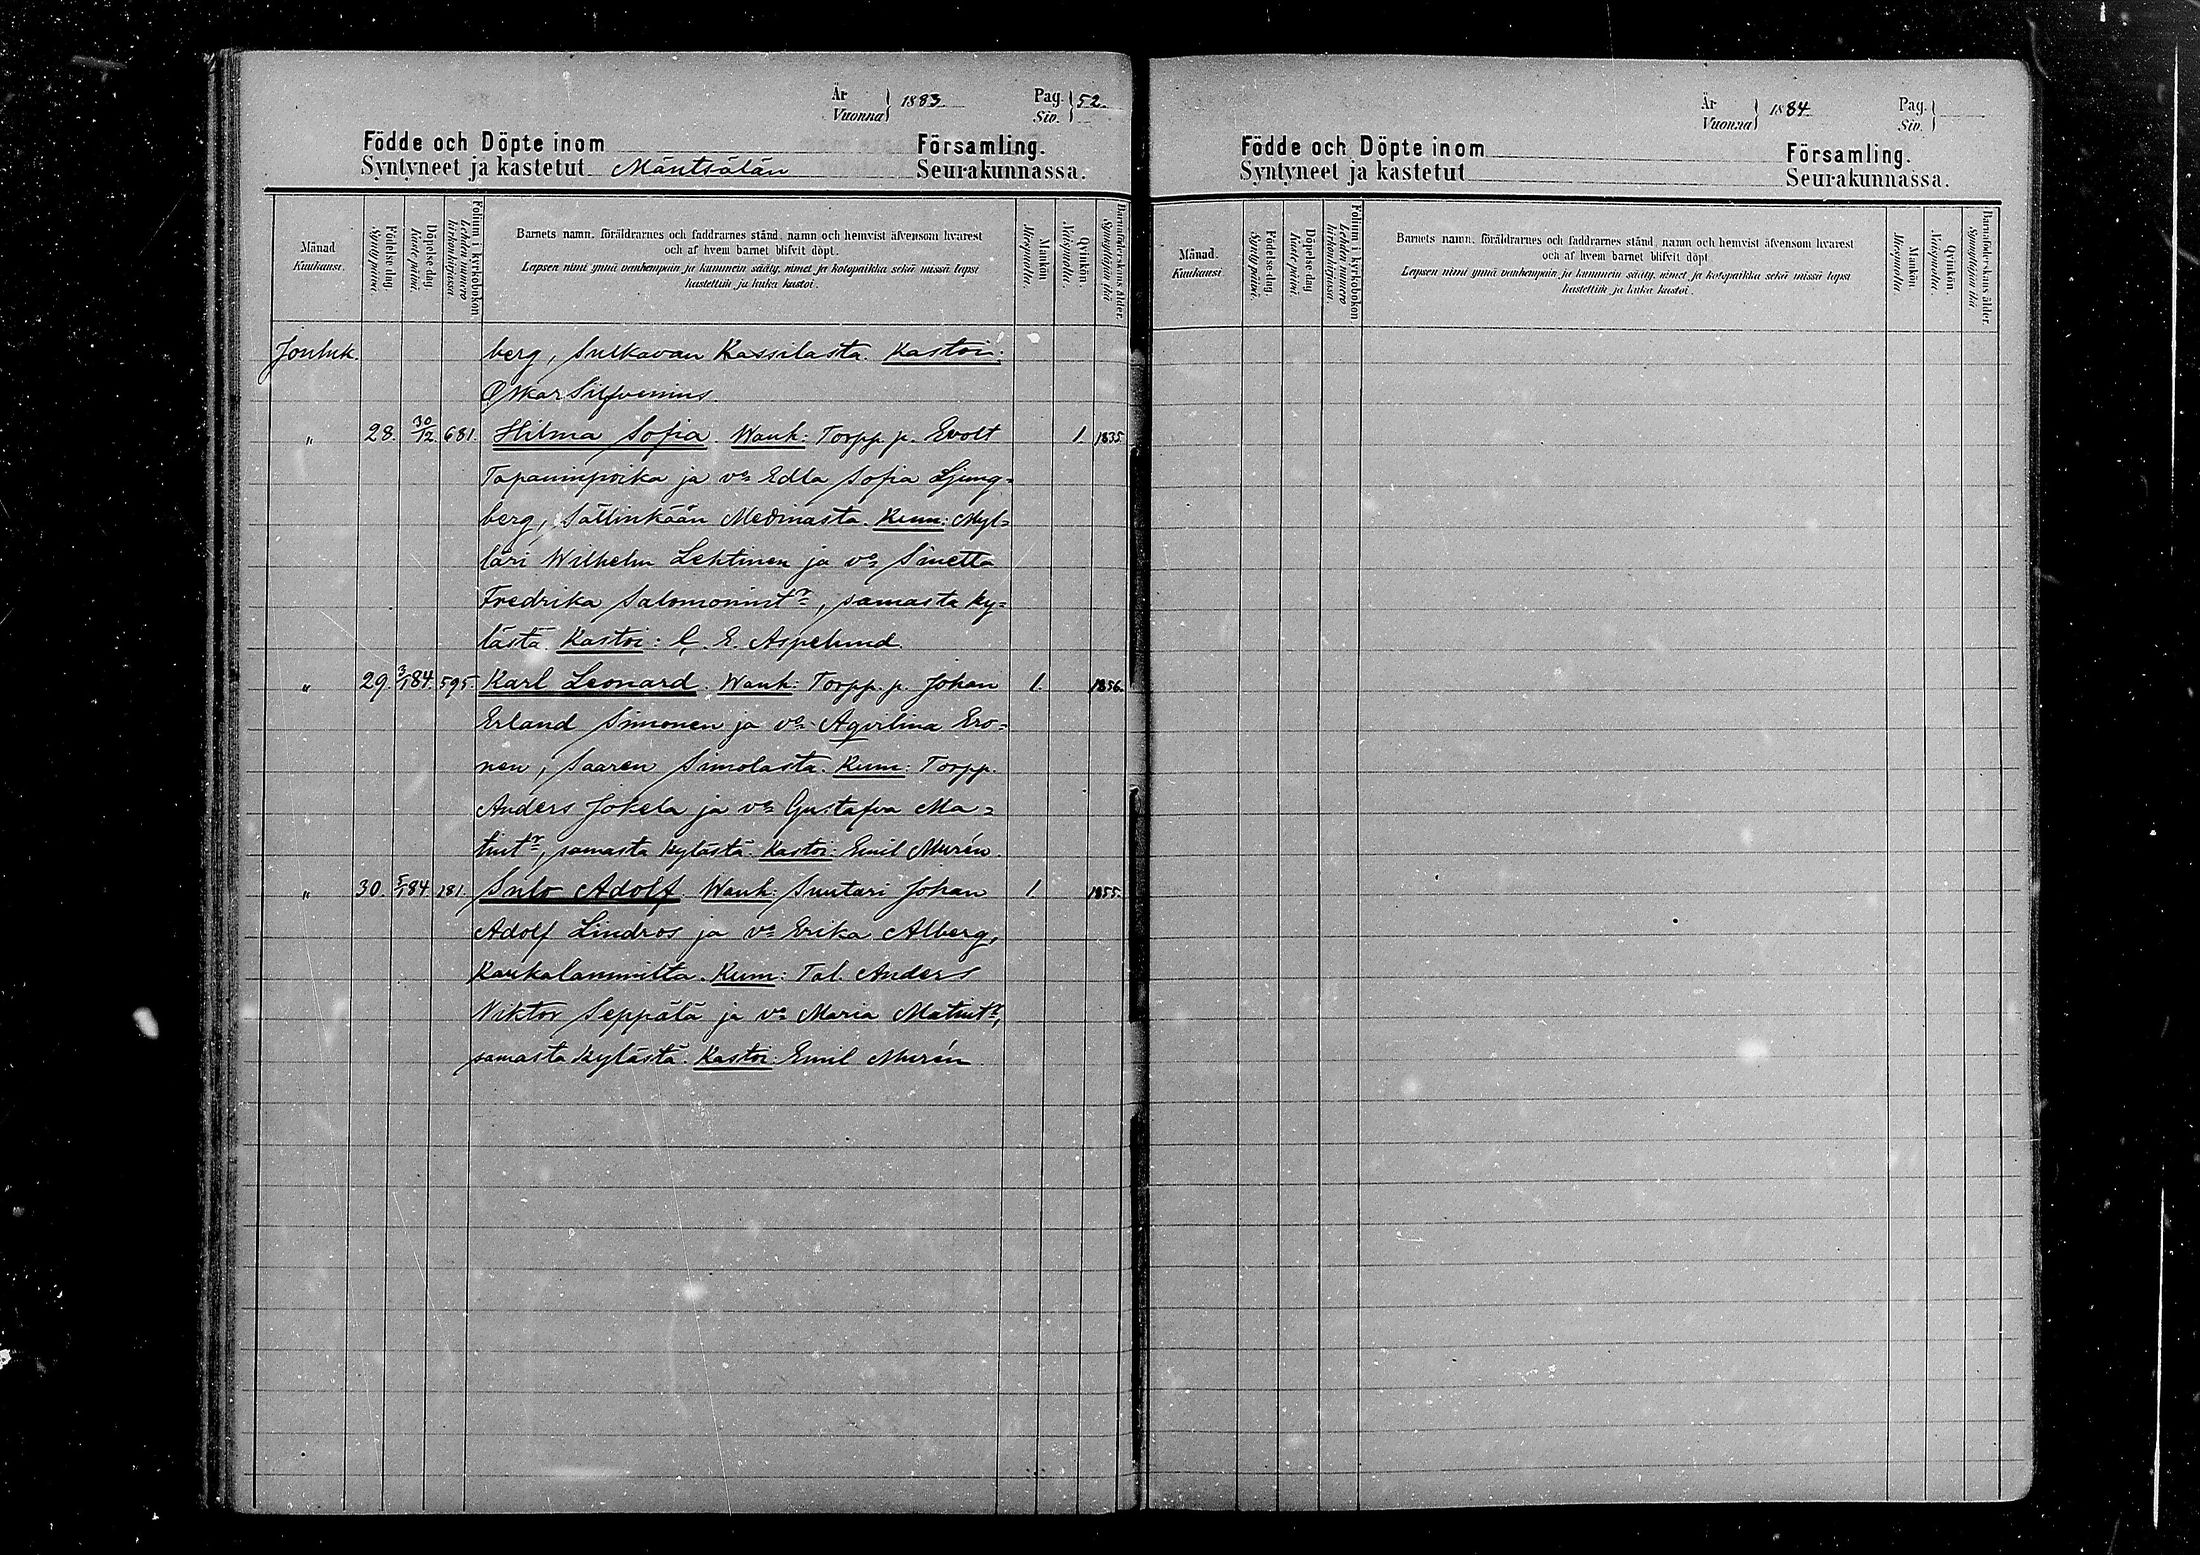 År
Vuonna } 1883.
Pag.
Siv. } 52.
Födde och Döpte inom Församling.
Syntyneet ja kastetut Mäntsälän Seurakunnassa.
Månad.
Kuukausi.
Födelse-dag.
Synty-päivä.
Döpelse-dag
Kaste-päivä.
Folium i kyrkoboken
Lehden numero kirkonkirjassa.
Barnets namn, föräldrarnes och faddrarnes stånd, namn och hemvist äfvensom hvarest
och af hvem barnet blifvit döpt.
Lapsen nimi ynnä vanhempain ja kummein sääty, nimet ja kotopaikka sekä missä lapsi
kastettiin ja kuka kastoi.
Mankön.
Miespuolta.
Qvinkön.
Naispuolta.
Barnaföderskans ålder.
Synnyttäjän ikä
Jouluk. berg, Sulkavan Kassilasta. Kastoi:
Oskar Silfvenius.
" 28. 30/12. 681. Hilma Sofia. Wanh: Torpp. p. Evolt 1. 1835
Tapaninpoika ja vo Edla Sofia Ljung=
berg, Sälinkään Medinasta. Kum: Myl=
läri Wilhelm Lehtinen ja vo Sinetta
Fredrika Salomonintr, samasta ky=
lästä. Kastoi: C. E. Aspelund.
" 29. 3/1 84. 595. Karl Leonard. Wanh: Torpp. p. Johan 1. 1856.
Erland Simonen ja vo Aqvilina Ero=
nen, Saaren Simolasta. Kum: Torpp.
Anders Jokela ja vo Gustafva Ma=
tintr, samasta kylästä. Kastoi: Emil Murén.
" 30. 5/1 84 281. Sulo Adolf. Wanh: Suutari Johan 1. 1855.
Adolf Lindros ja vo Erika Alberg,
Kaukalammilta. Kum: Tal. Anders
Viktor Seppälä ja vo Maria Matintr,
samasta kylästä. Kastoi: Emil Murén
År
Vuonna } 1884.
Pag.
Siv. }
Födde och Döpte inom Församling.
Syntyneet ja kastetut Seurakunnassa.
Månad.
Kuukausi
Födelse-dag.
Synty-päivä.
Döpelse-dag
Kaste-päivä.
Folium i kyrkoboken
Lehden numero kirkonkirjassa.
Barnets namn, föräldrarnes och faddrarnes stånd, namn och hemvist äfvensom hvarest
och af hvem barnet blifvit döpt
Lapsen nimi ynnä vanhempain ja kummein sääty, nimet ja kotopaikka sekä missä lapsi
kastettiin ja kuka kastoi.
Mankön
Miespuolta.
Qvinkön.
Naispuolta.
Barnaföderskans ålder.
Synnyttäjän ikä